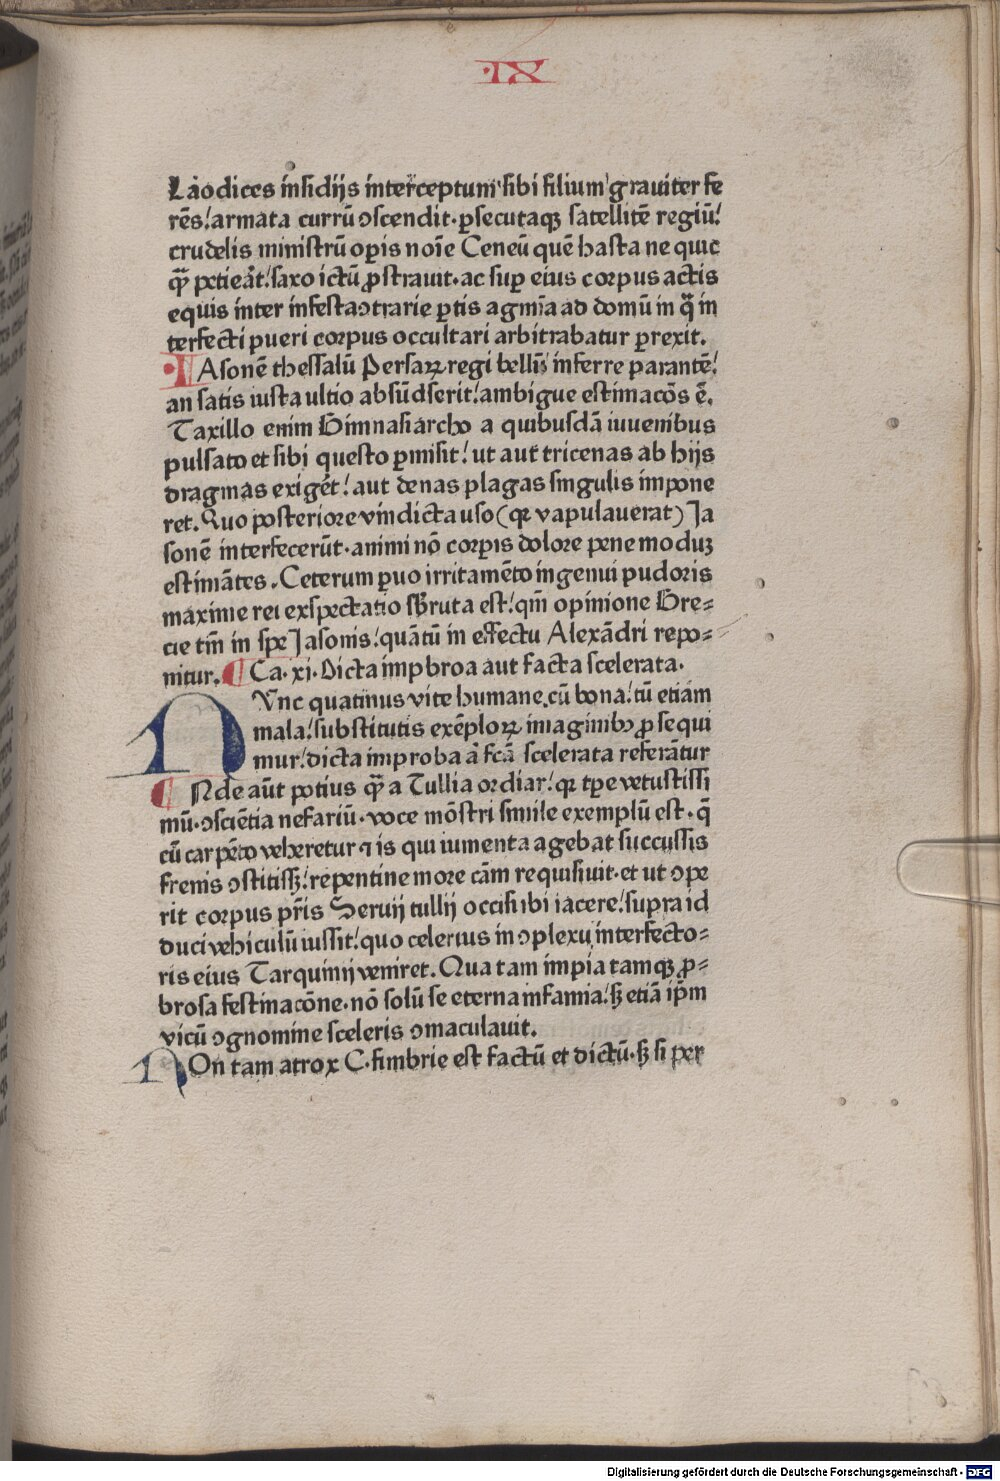 ·IX·
Laodices insidijs interceptum sibi filium grauiter fe
rēs! armata currū ↄscendit· ꝑsecutaqꝫ satellitē regiū!
crudelis ministrū oꝑis noīe Ceneū quē hasta ne quic
q̄ꝫ petieāt! saxo ictū ꝓstrauit· ac suꝑ eius corpus actis
equis inter infesta ↄtrarie ꝑtis agmīa ad domū in q̄ in
terfecti pueri corpus occultari arbitrabatur ꝑrexit.
IAsonē thessalū Persaꝝ regi bellū inferre parantē!
an satis iusta ultio absūdserit! ambigue estimacōs ē.
Taxillo enim Gimnasiarcho a quibusdā iuuenibus
pulsato et sibi questo ꝑmisit! ut aut tricenas ab hijs
dragmas exigēt! aut denas plagas singulis impone
ret. Quo posteriore vindicta uso (qꝛ vapulauerat) Ja
sonē interfecerūt· animi nō corꝑis dolore pene moduꝫ
estimātes. Ceterum ꝑuo irritamēto ingenui pudoris
maxime rei exspectatio sbruta est! qm̄ opinione Gre⸗
cie tm̄ in spe Jasonis! quātū in effectu Alexādri repo⸗
nitur. ¶ Ca· xi· Dicta impbroa aut facta scelerata.
NVnc quatinus vite humane cū bona! tū etiam
mala! substitutis exēploꝝ imaginibꝫ ꝓsequi
mur! dicta improba a fcā scelerata referātur
¶ Nde aūt potius q̄ꝫ a Tullia ordiar! qꝛ tꝑe vetustissi
mū· ↄsciētia nefariū· voce mōstri simile exemplū est· q̄
cū carpēto veheretur ⁊ is qui iumenta agebat succussis
frenis ↄstitissꝫ! repentine more cām requisiuit· et ut ↄpe
rit corpus pr̄is Seruij tullij occisi ibi iacere! supra id
duci vehiculū iussit! quo celerius in ↄplexu interfecto⸗
ris eius Tarquinij veniret. Qua tam impia tamqꝫ ꝓ⸗
brosa festinacōne· nō solū se eterna infamia! sꝫ etiā ip̄m
vicū ↄgnomine sceleris ↄmaculauit.
NOn tam atrox C· fimbrie est factū et dictū· sꝫ si per
Digitalisierung gefördert durch die Deutsche Forschungsgemeinschaft - DFG